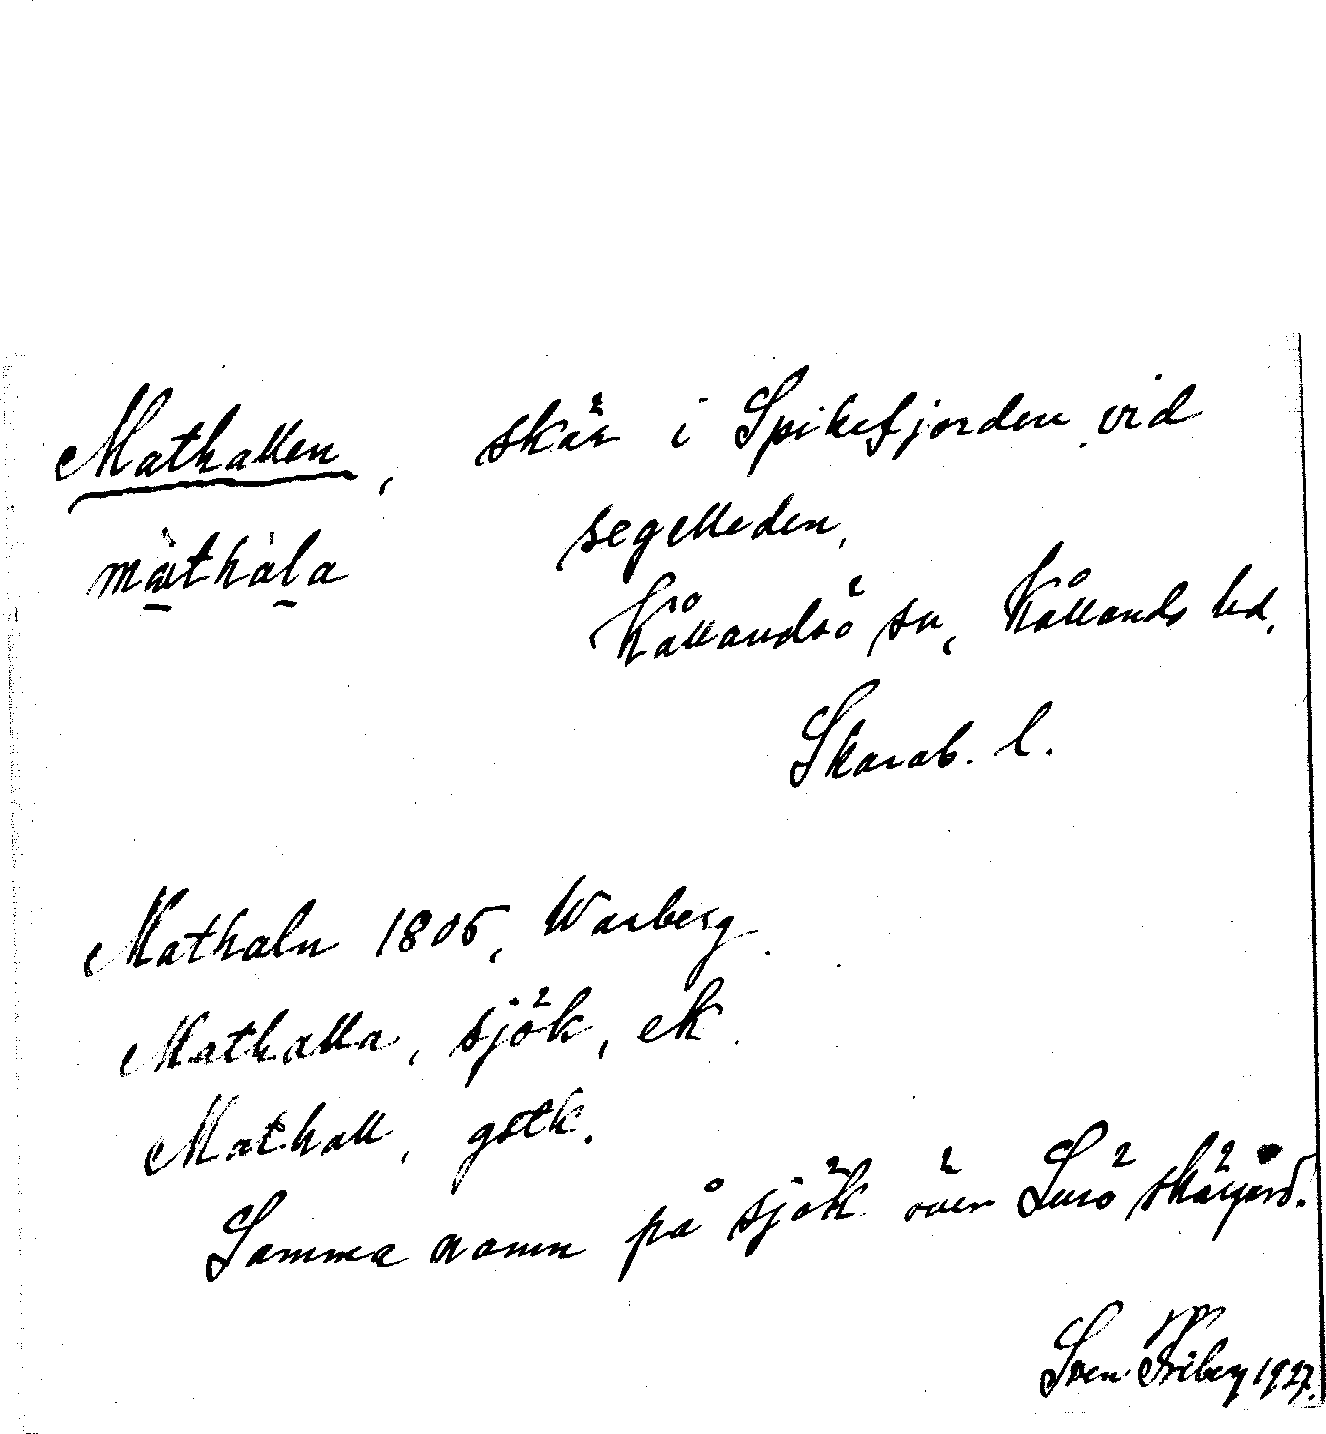 Mathallen, skär i Spikefjorden vid
màthàla segelleden,
Kållandsö sn, Kållands hd,
Skarab. l.
Mathaln 1805, Warberg.
Mathalla, sjök, ek.
Mathall, gstk.
Samma namn på sjök över Lurö skärgård.
Sven Friberg 1927.